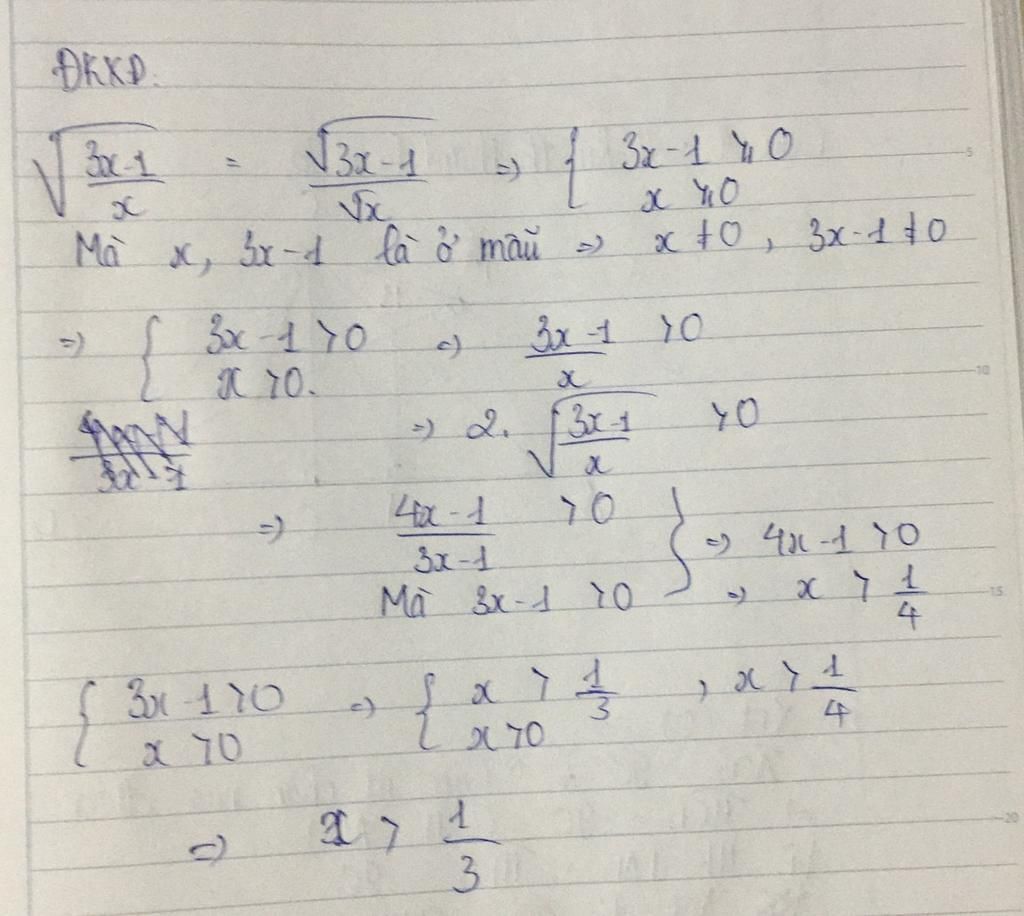 ĐKXĐ.
√((3x-1)/x) = √(3x-1)/√x => { 3x-1 ≥ 0
x ≥ 0
Mà x, 3x-1 là ở mẫu => x ≠ 0, 3x-1 ≠ 0
=> { 3x-1 > 0 => (3x-1)/x > 0
x > 0.
=> 2. √((3x-1)/x) > 0
=> (4x-1)/(3x-1) > 0 } => 4x-1 > 0
Mà 3x-1 > 0 => x > 1/4
{ 3x-1 > 0 => { x > 1/3 , x > 1/4
x > 0 x > 0
=> x > 1/3